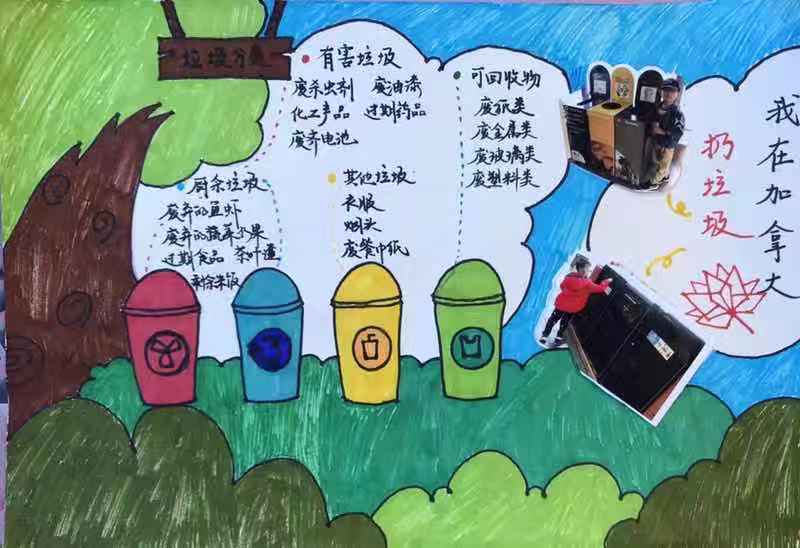 垃圾分类
有害垃圾
废杀虫剂 废油漆
化工产品 过期药品
废弃电池
可回收物
废纸类
废金属类
废玻璃类
废塑料类
厨余垃圾
废弃的鱼虾
废弃的蔬菜水果
过期食品 茶叶渣
剩余米饭
其他垃圾
衣服
烟头
废餐巾纸
我在加拿大
扔垃圾